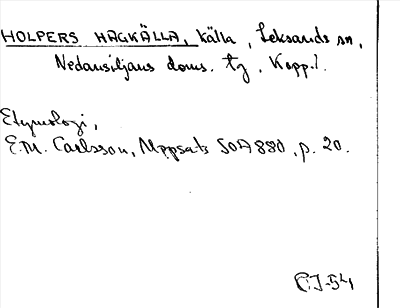 HOLPERS HAGKÄLLA, källa, Leksands sn,
Nedansiljans doms. tg, Kopp.l.
Etymologi,
E.M. Carlsson, Uppsats SOA 880, p. 20.
CJ-54